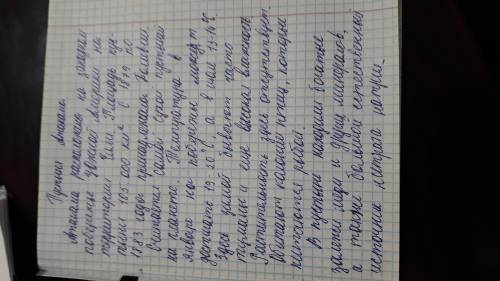 Пустыня Атакама.
Атакама расположена на западном
побережье Южной Америки на
территории Чили. Площадь пус-
тыни 105.000 км² в 1879 по
1883 годы принадлежала Боливии.
Считается самой сухой пустыней
на планете. Температура в
январе на побережье может
достигать 19-20°С, а в июле 13-14°С.
Здесь зимой бывают часто
туманы и еще высокая влажность.
Растительность здесь отсутствует.
Обитают колонии птиц, которые
питаются рыбой.
В пустыне находят богатые
залежи меди и других минералов,
а также большой естественный
источник нитрата натрия.